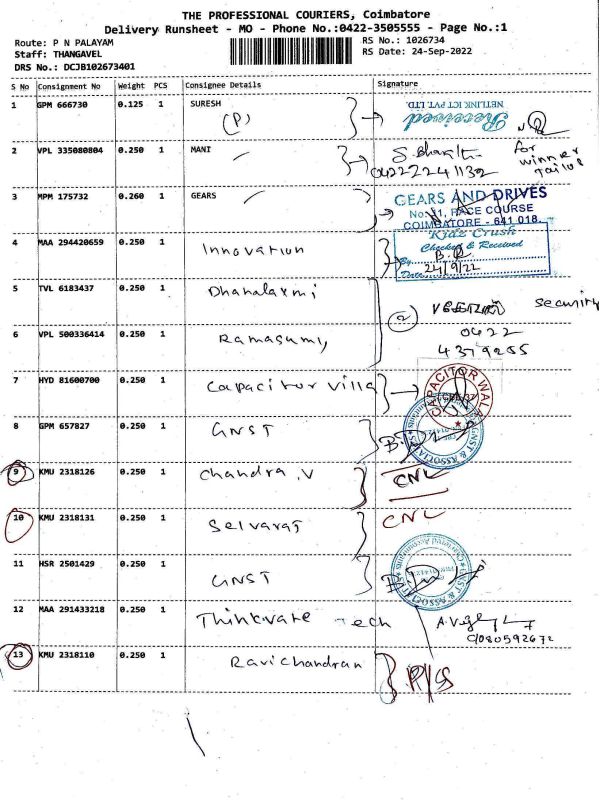 THE PROFESSIONAL COURIERS, Coimbatore
Delivery Runsheet - MO - Phone No.:0422-3505555 - Page No.:1
Route: P N PALAYAM RS No.: 1026734
Staff: THANGAVEL RS Date: 24-Sep-2022
DRS No.: DCJB102673401
S No Consignment No Weight PCS Consignee Details Signature
1 GPM 666730 0.125 1 SURESH
(P)
NETLINK ICT PVT. LTD.
Received
2 VPL 335080804 0.250 1 MANI
for winner
04222241132
3 MPM 175732 0.260 1 GEARS
GEARS AND DRIVES
No: 41, RACE COURSE
COIMBATORE - 641 018.
4 MAA 294420659 0.250 1 Innovation
Kidz Crush
Checked & Received
By
Date 24/9/22
5 TVL 6183437 0.250 1 Dhanalaxmi
security
6 VPL 500336414 0.250 1 Ramasamy
0422
4379255
7 HYD 81600700 0.250 1 Capacitor Villa
CAPACITOR WALA
8 GPM 657827 0.250 1 GNST
GNST & ASSOCIATES
Chartered Accountants
9 KMU 2318126 0.250 1 Chandra.V CNL
10 KMU 2318131 0.250 1 Selvaraj CNL
11 HSR 2501429 0.250 1 GNST
GNST & ASSOCIATES
Chartered Accountants
12 MAA 291433218 0.250 1 Thinkvare Tech
9080592672
13 KMU 2318110 0.250 1 Ravichandran